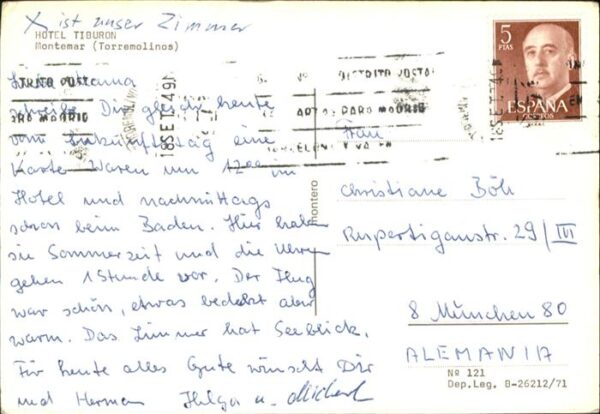 X ist unser Zimmer
HOTEL TIBURON
Montemar (Torremolinos)
5
PTAS
ESPAÑA
CORREOS
DISTRITO POSTAL
MADRID
PARA MADRID
BARCELONA VA EN
18 SET 74
schreibe Dir gleich heute
vom Ankunftstag eine
Karte. Waren um 12 00 im
Hotel und nachmittags
schon beim Baden. Hier haben
sie Sommerzeit und die Uhren
gehen 1 Stunde vor. Der Flug
war schön, etwas bedeckt aber
warm. Das Zimmer hat Seeblick.
Für heute alles Gute wünscht Dir
und Hermann Helga u. Michael
montero
Frau
Christiane Böh
Rupertigaustr. 29/III
8 München 80
ALEMANIA
Nº 121
Dep.Leg. B-26212/71